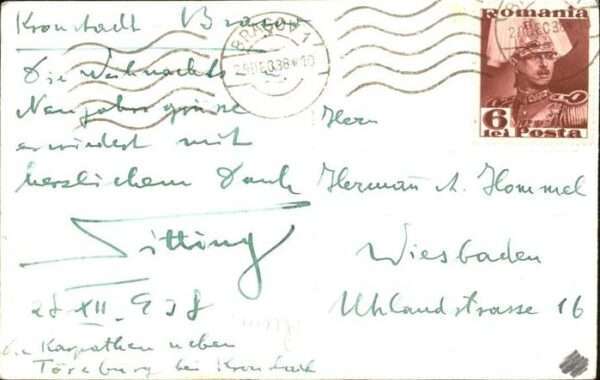 Kronstadt Brasov
Die Weihnachts
Neujahrsgrüsse
erwiedert mit
herzlichem Dank
Titting
28 XII. 938
die Karpathen neben
Törzburg bei Kronstadt
BRASOV 1
DEC 938 10
Romania
6
lei Posta
Herrn
Herman A. Hommel
Wiesbaden
Uhlandstrasse 16